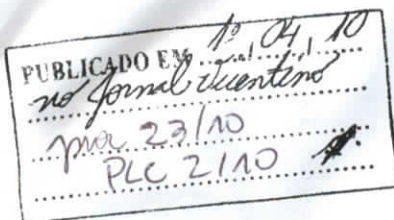 PUBLICADO EM 1º, 04, 10
no Jornal Vicentino
proc 23/10
PLC 2/10